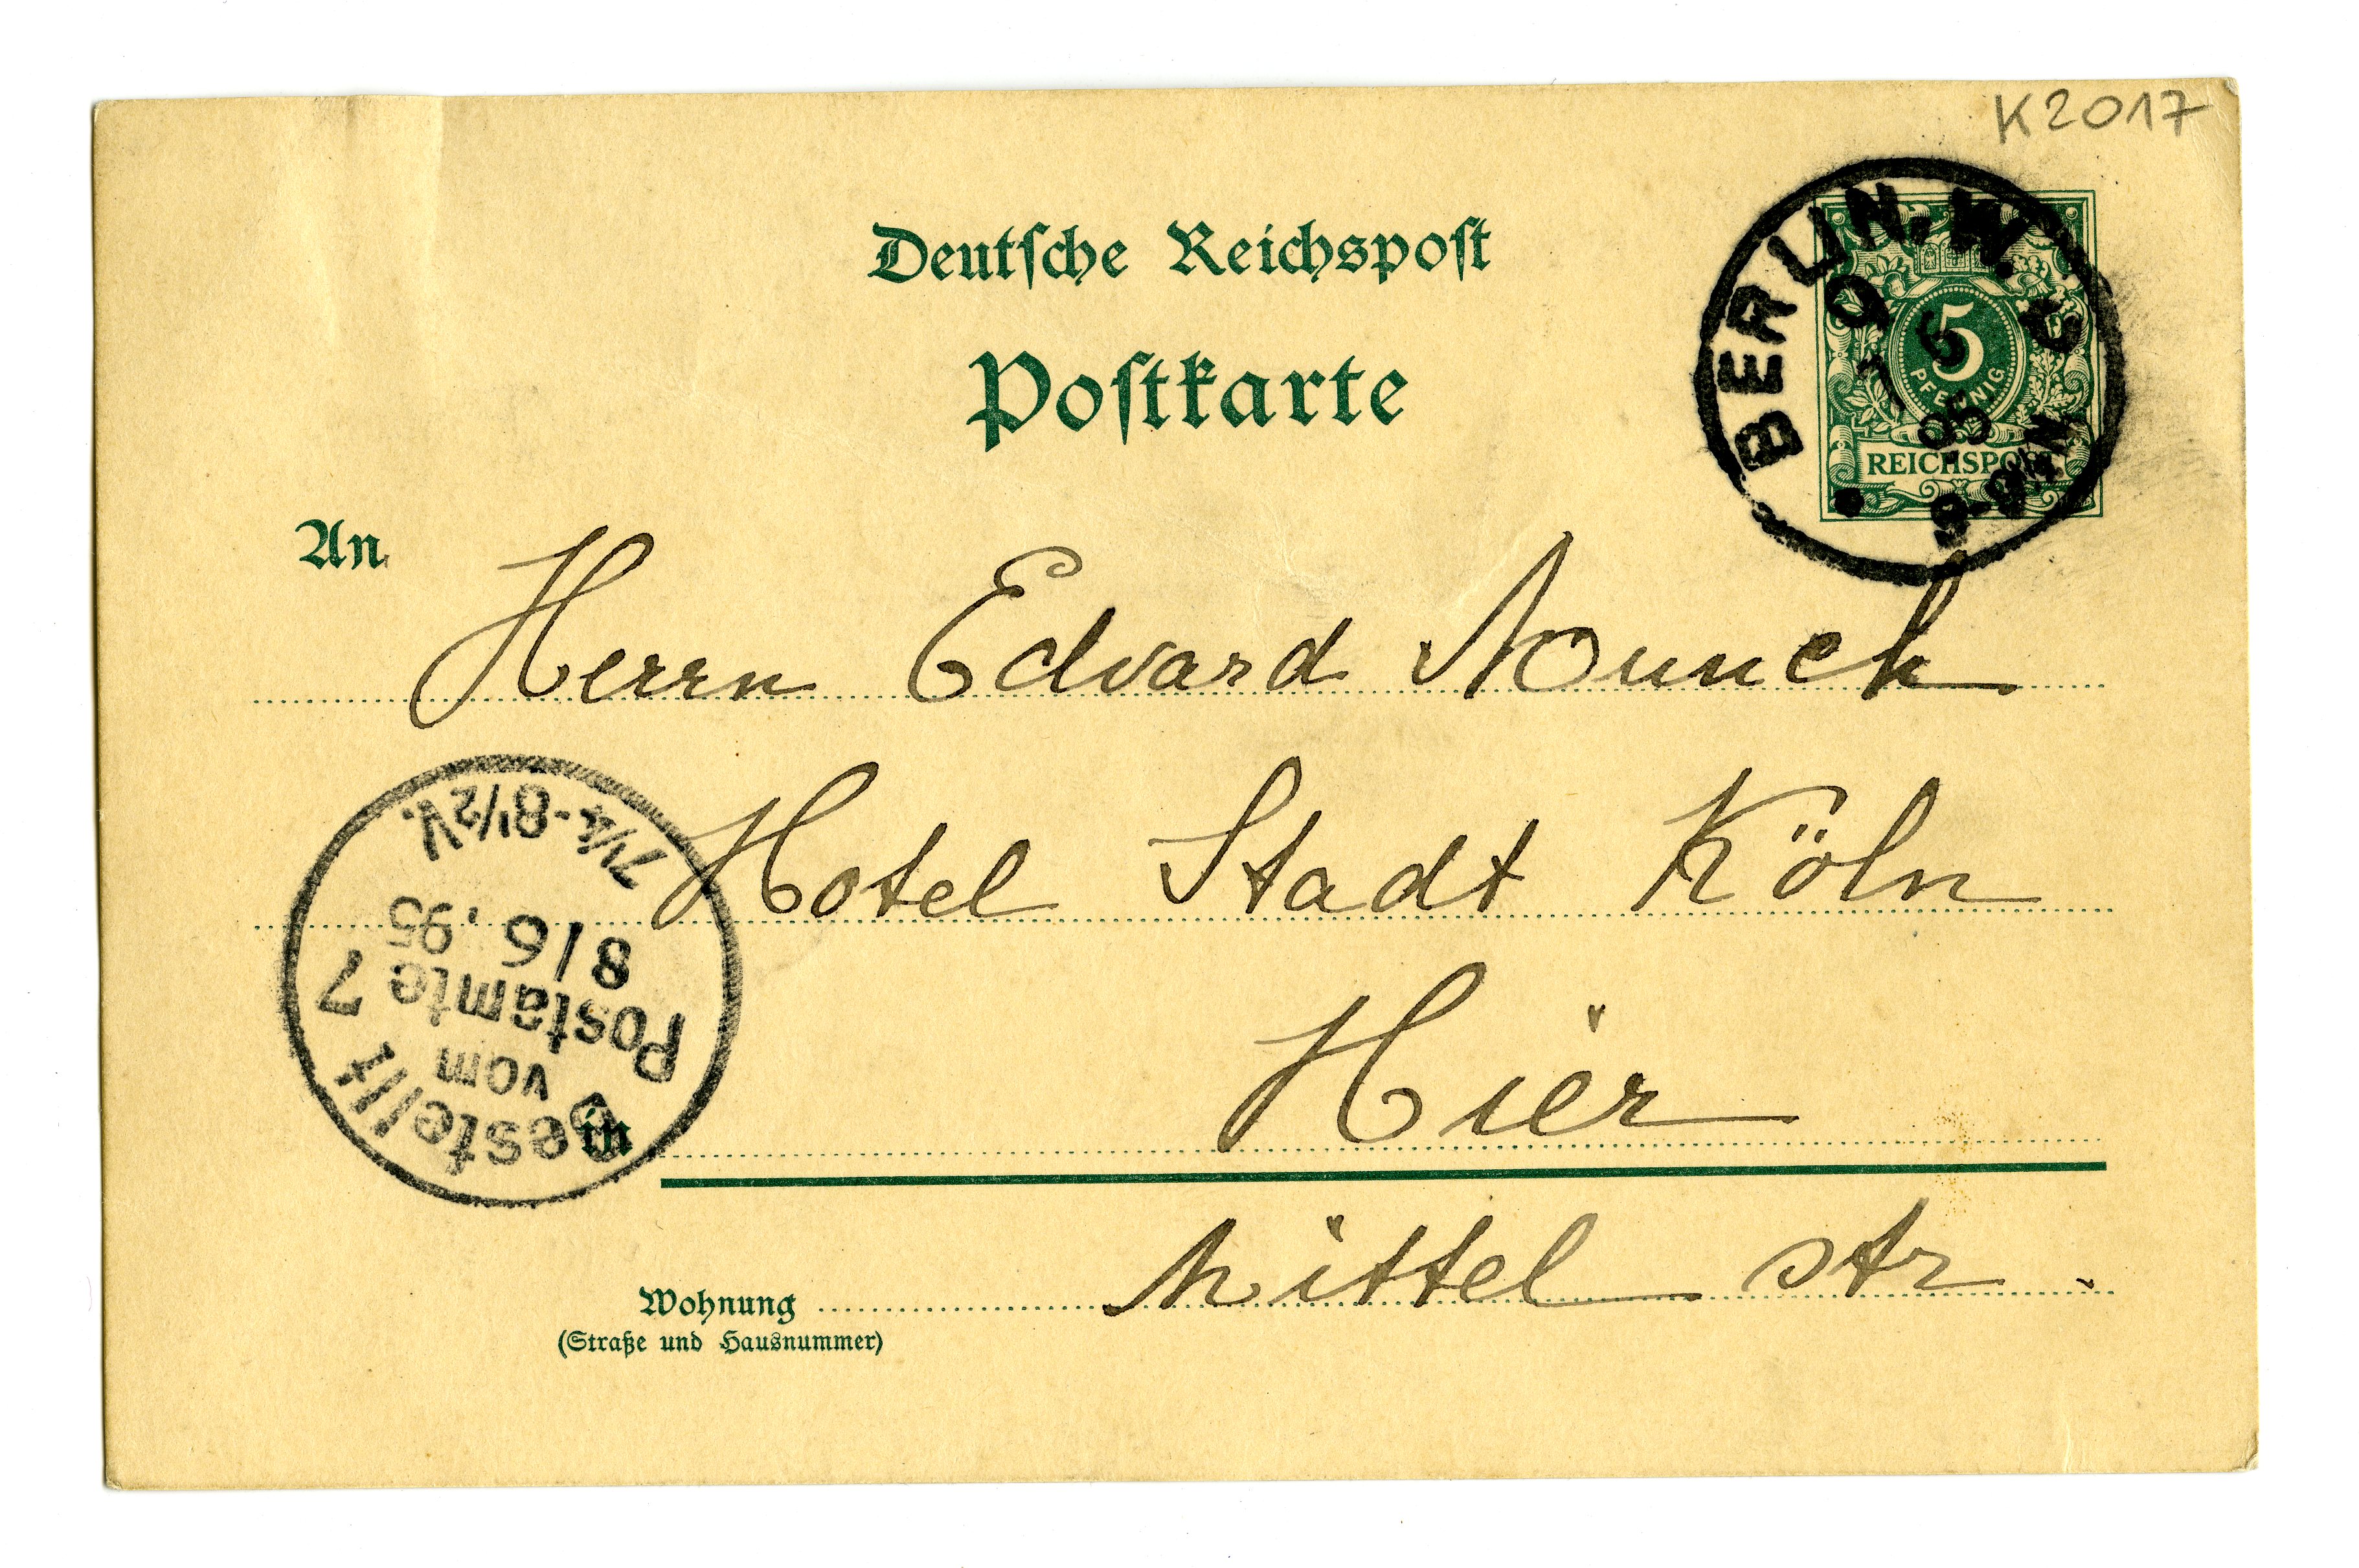 K2017
Deutsche Reichspost
Postkarte
BERLIN, W.
9
7 6
95
8-9 N.
5
PFENNIG
REICHSPOST
An
Herrn Edvard Munch
Hotel Stadt Köln
Hier
in
Mittel str.
Wohnung
(Straße und Hausnummer)
Bestellt
vom
Postamte 7
8/6.95
7¼-8½V.